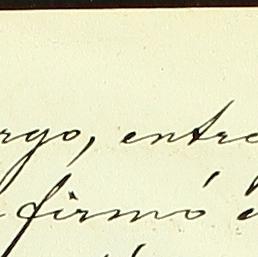 rgo, entre
firmó